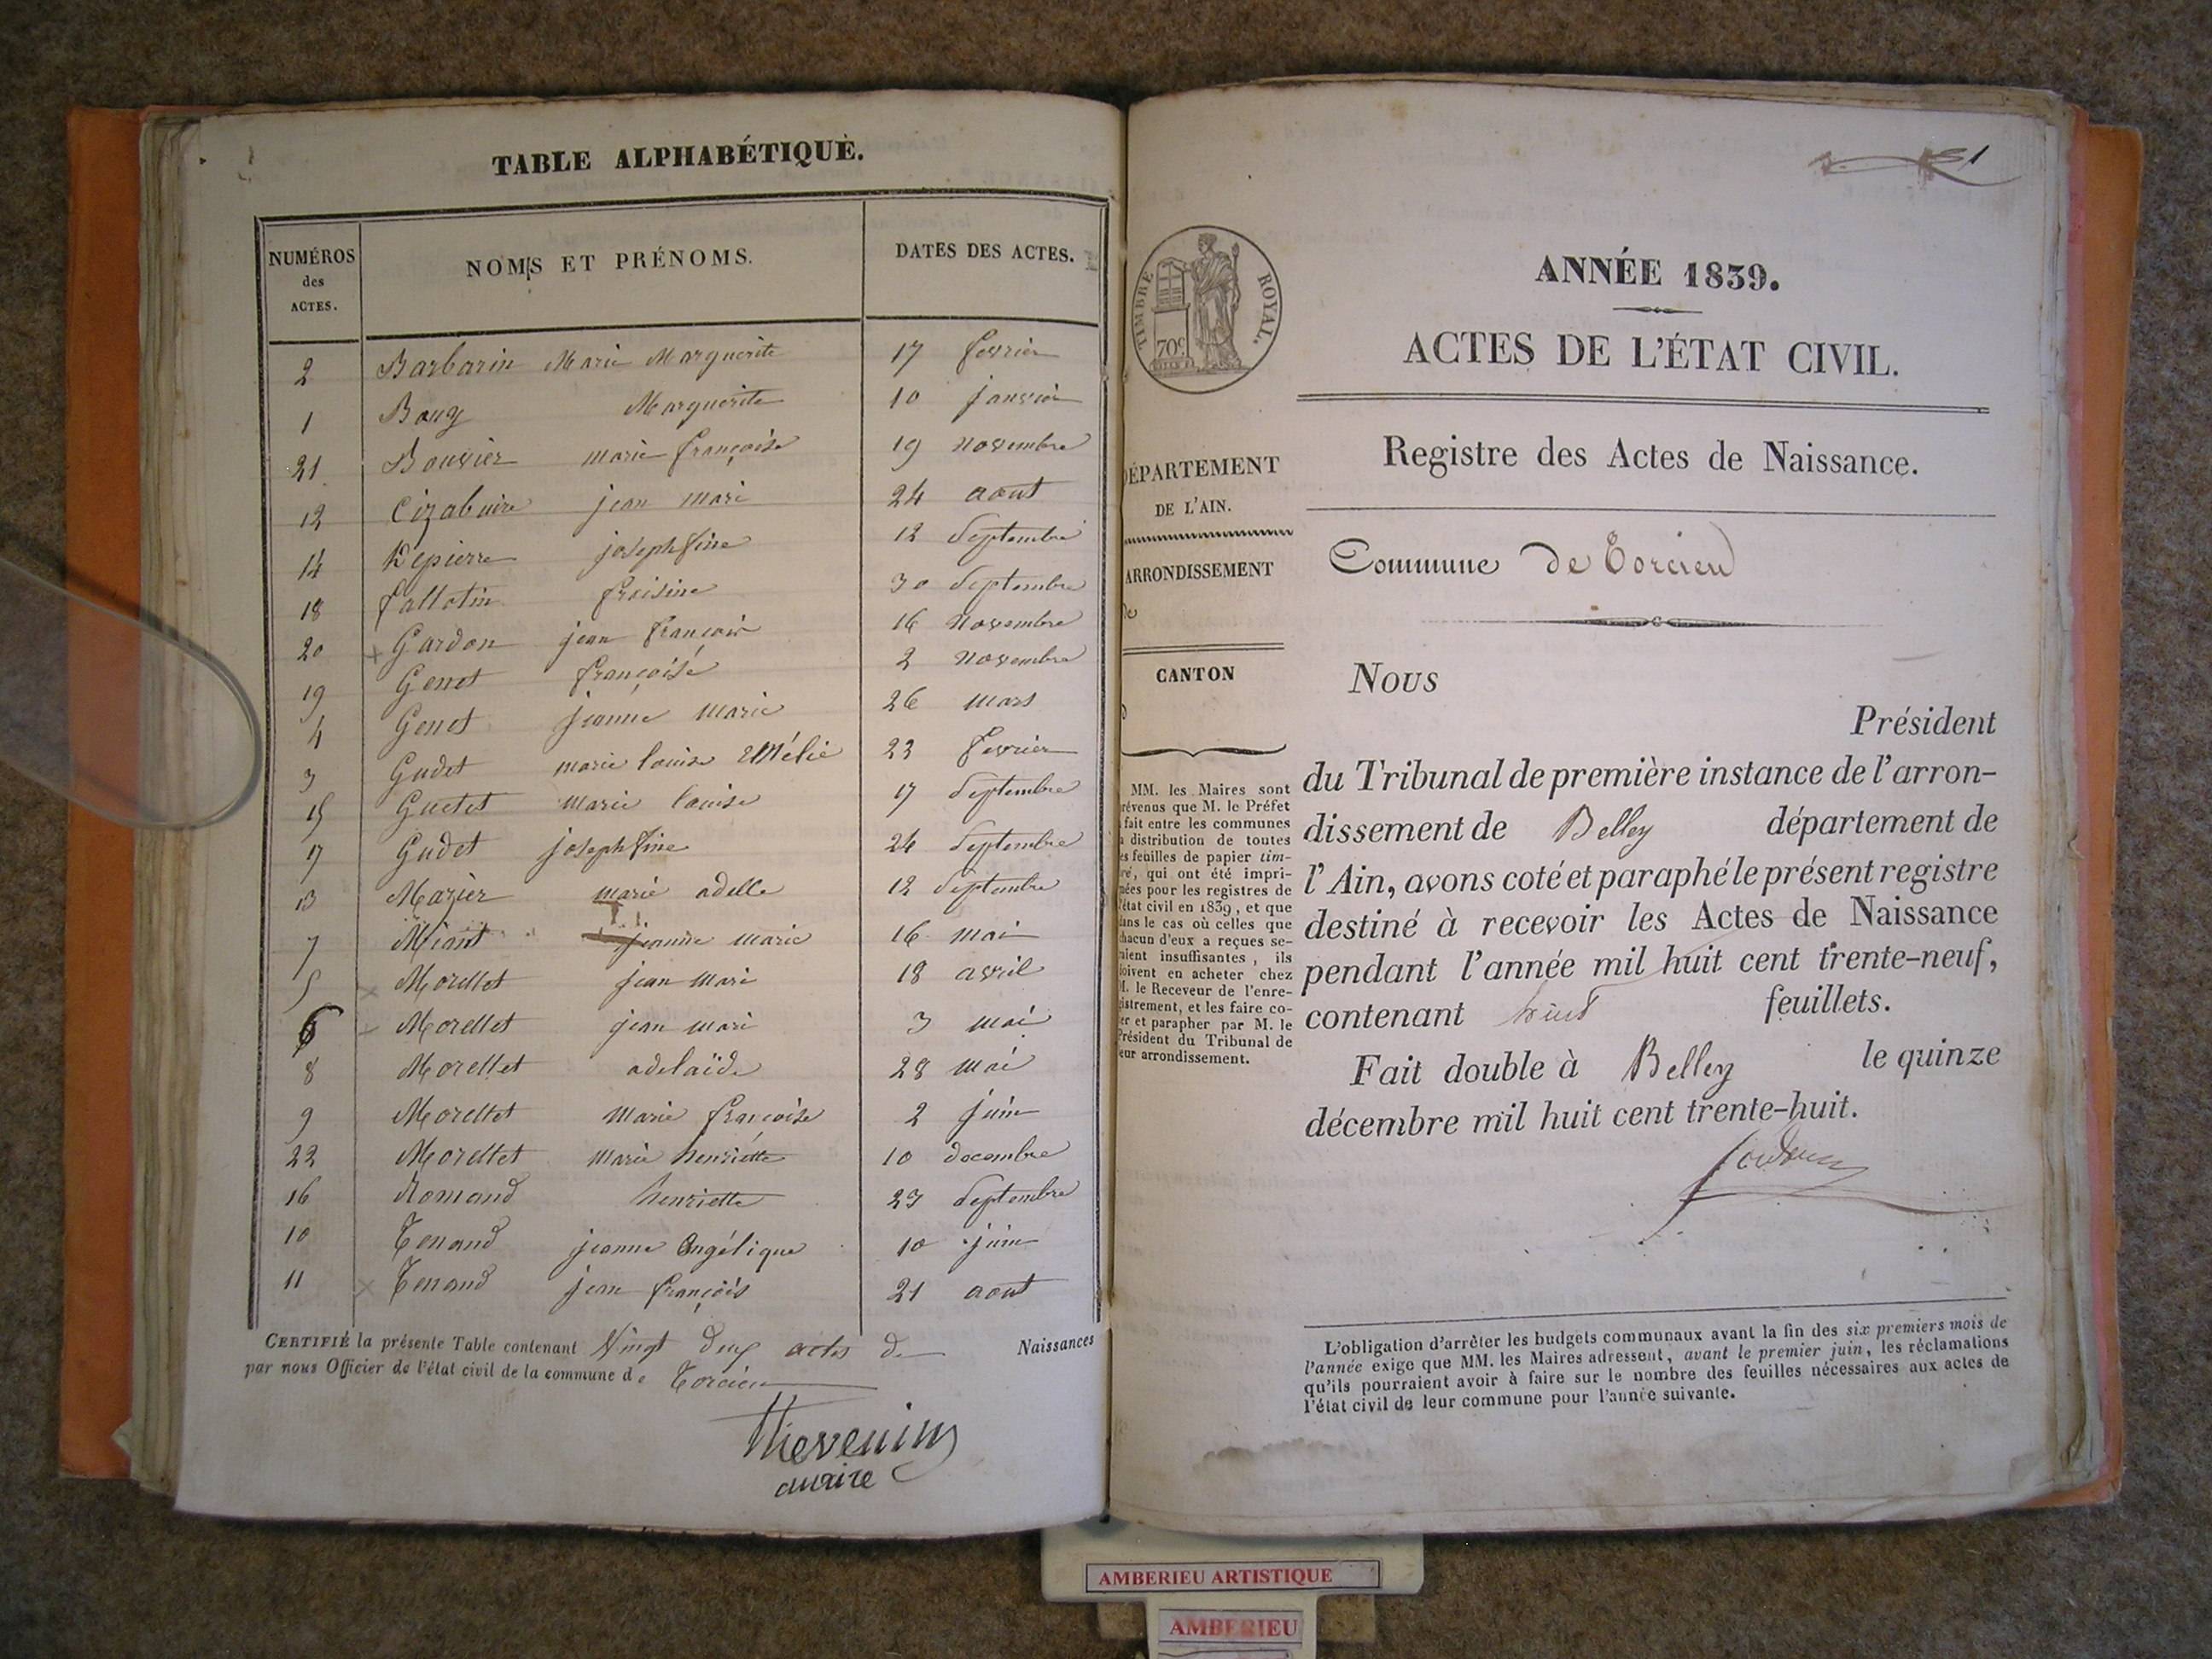 TABLE ALPHABÉTIQUE.
NUMÉROS des ACTES. NOMS ET PRÉNOMS. DATES DES ACTES.
2 Barbarin Marie Marguerite 17 fevrier
1 Bouy Marguerite 10 janvier
21 Bouvier marie françoise 19 novembre
12 Cizabuire jean mari 24 aout
14 Depierre josephfine 12 Septembre
18 fallotin froisine 30 Septembre
20 Gardon jean françois 16 novembre
19 Genet françoise 2 novembre
4 Genet jeanne marie 26 mars
3 Gudet marie louise Mélie 23 fevrier
15 Guetet marie louise 17 Septembre
17 Gudet josephfine 24 Septembre
13 Mazier marie adelle 12 Septembre
7 Miant jeanne marie 16 mai
5 Morellet jean mari 18 avril
6 Morellet jean mari 3 mai
8 Morellet adelaïde 28 mai
9 Morellet marie françoise 2 juin
22 Morellet marie henriette 10 decembre
16 Romand henriette 23 Septembre
10 Tenand jeanne Angélique 10 juin
11 Tenand jean françois 21 aout
CERTIFIÉ la présente Table contenant Vingt deux actes de Naissances
par nous Officier de l'état civil de la commune de Torcieu
Thevenin
maire
1
TIMBRE ROYAL.
70c
ANNÉE 1839.
ACTES DE L'ÉTAT CIVIL.
Registre des Actes de Naissance.
DÉPARTEMENT
DE L'AIN.
ARRONDISSEMENT
de
CANTON
d
Commune de Torcieu
Nous
Président
du Tribunal de première instance de l'arron-
dissement de Belley département de
l'Ain, avons coté et paraphé le présent registre
destiné à recevoir les Actes de Naissance
pendant l'année mil huit cent trente-neuf,
contenant huit feuillets.
Fait double à Belley le quinze
décembre mil huit cent trente-huit.
MM. les Maires sont
prévenus que M. le Préfet
a fait entre les communes
la distribution de toutes
les feuilles de papier tim-
bré, qui ont été impri-
mées pour les registres de
l'état civil en 1839, et que
dans le cas où celles que
chacun d'eux a reçues se-
raient insuffisantes, ils
doivent en acheter chez
M. le Receveur de l'enre-
gistrement, et les faire co-
ter et parapher par M. le
Président du Tribunal de
leur arrondissement.
L'obligation d'arrêter les budgets communaux avant la fin des six premiers mois de
l'année exige que MM. les Maires adressent, avant le premier juin, les réclamations
qu'ils pourraient avoir à faire sur le nombre des feuilles nécessaires aux actes de
l'état civil de leur commune pour l'année suivante.
AMBERIEU ARTISTIQUE
AMBERIEU